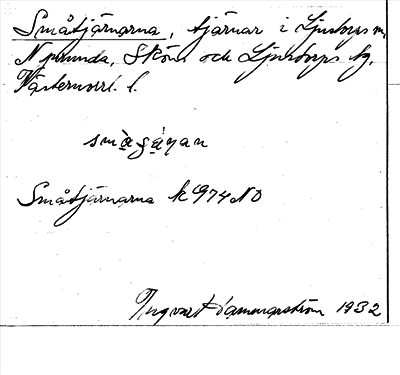 Småtjärnarna, tjärnar i Ljustorps sn.
Njurunda, Sköns och Ljustorps tg.
Västernorrl. l.
småʃɑ̀ṇan
Småtjärnarna k 974 NO
Ingvart Hammarström 1932